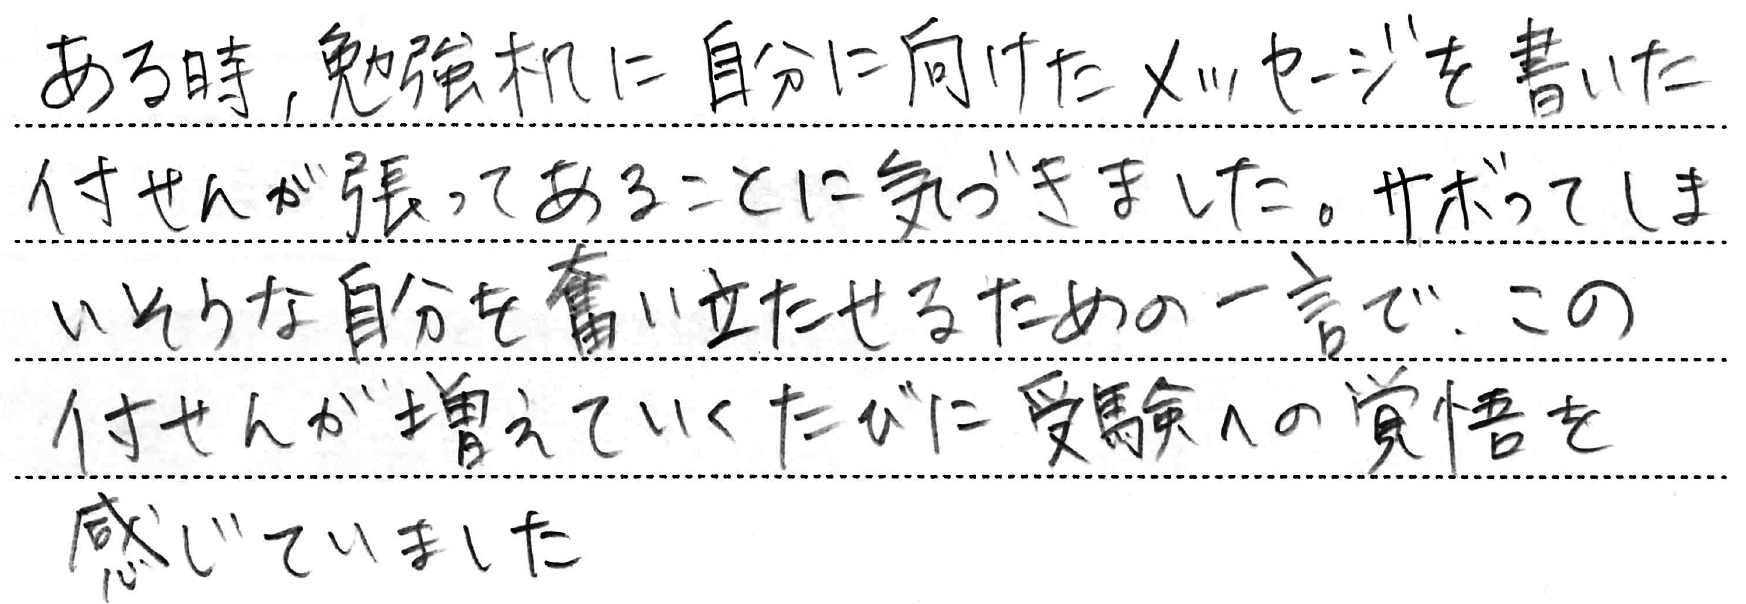 ある時,勉強机に自分に向けたメッセージを書いた
付せんが張ってあることに気づきました。サボってしま
いそうな自分を奮い立たせるための一言で、この
付せんが増えていくたびに受験への覚悟を
感じていました